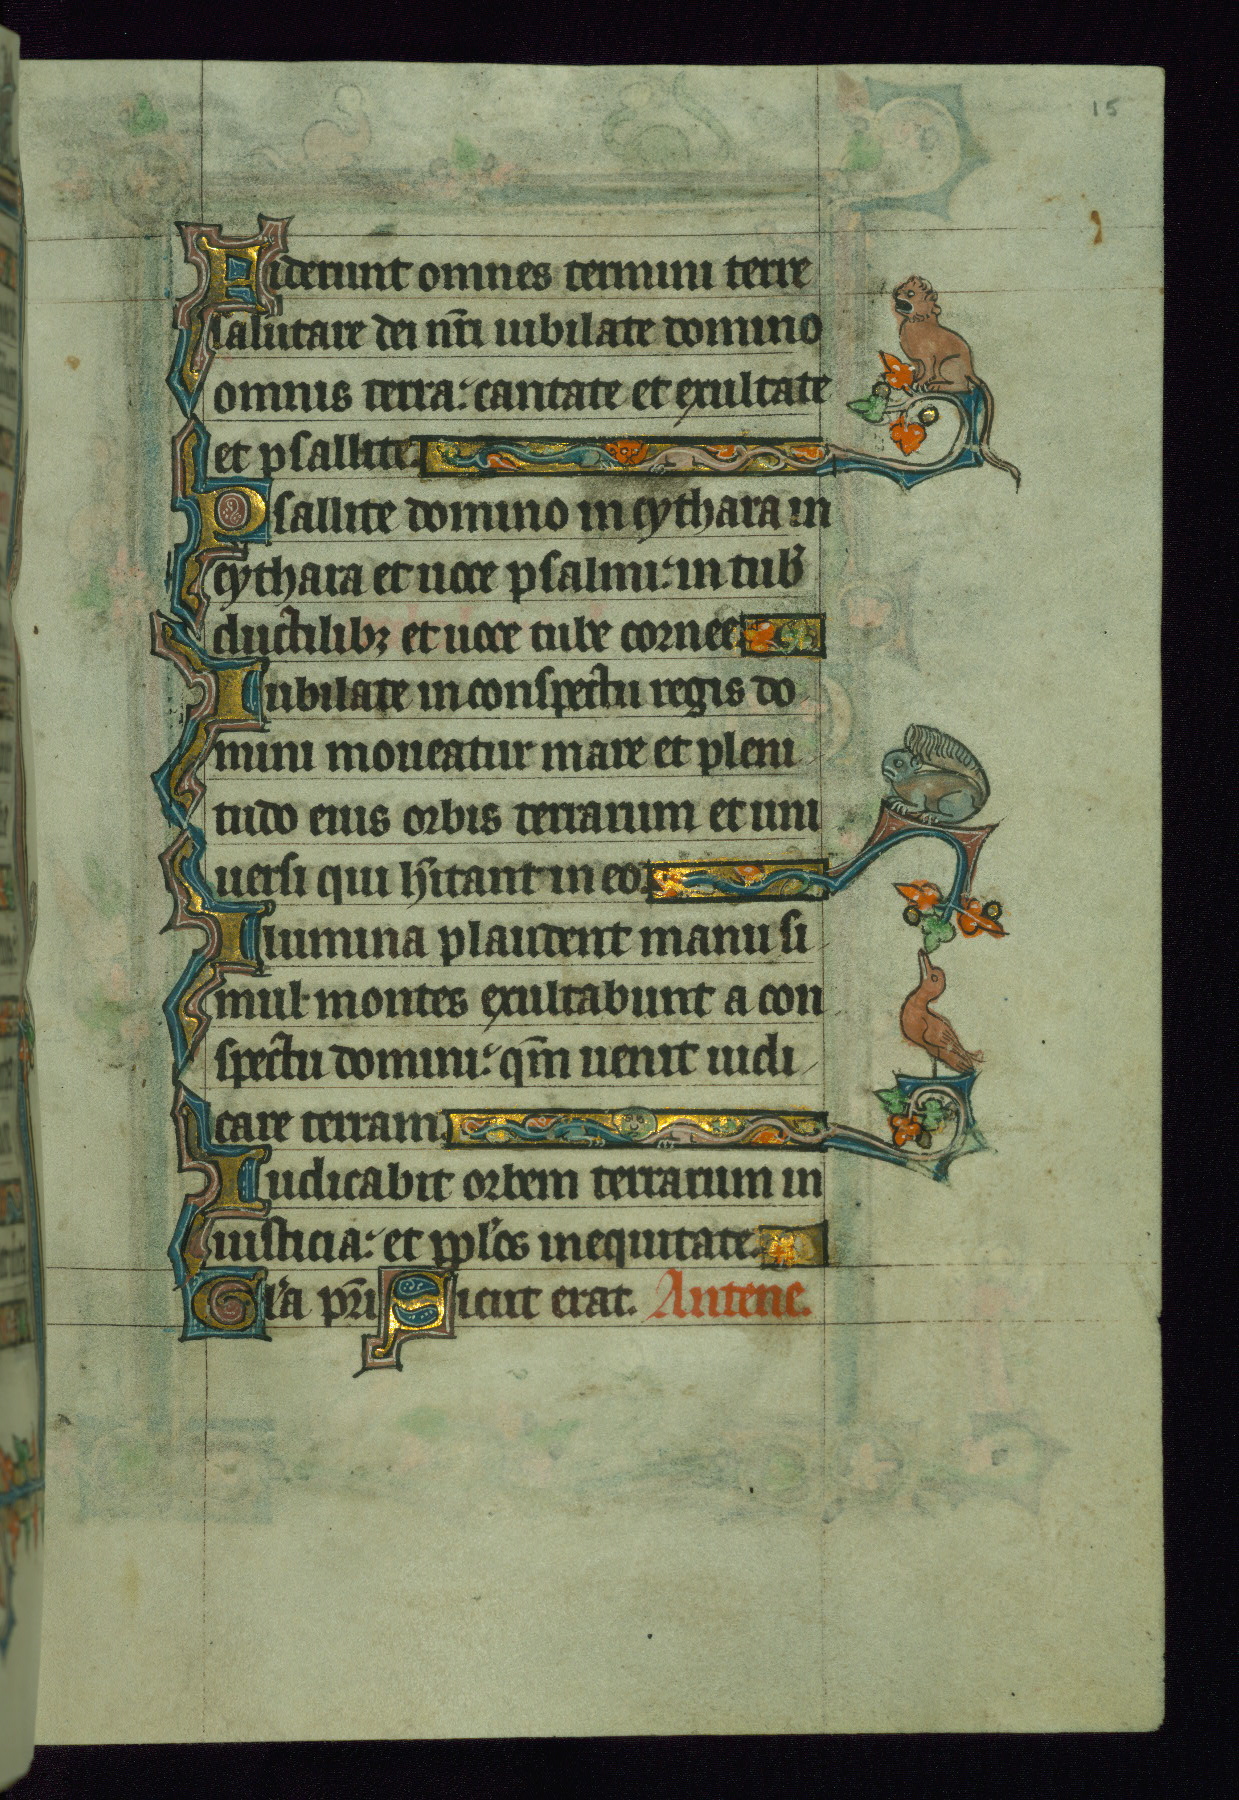 15
Viderunt omnes termini terre
salutare dei nr̄i iubilate domino
omnis terra: cantate et exultate
et psallite.
Psallite domino in cythara in
cythara et uoce psalmi: in tub̄
ductilibꝫ et uoce tube cornee.
Iubilate in conspectu regis do
mini moueatur mare et pleni
tudo eius orbis terrarum et uni
uersi qui hītant in eo.
Flumina plaudent manu si
mul montes exultabunt a con
spectu domini: qm̄ uenit iudi
care terram.
Iudicabit orbem terrarum in
iusticia: et ppl̄os in equitate.
Gl̄a pr̄i Sicut erat. Antene.